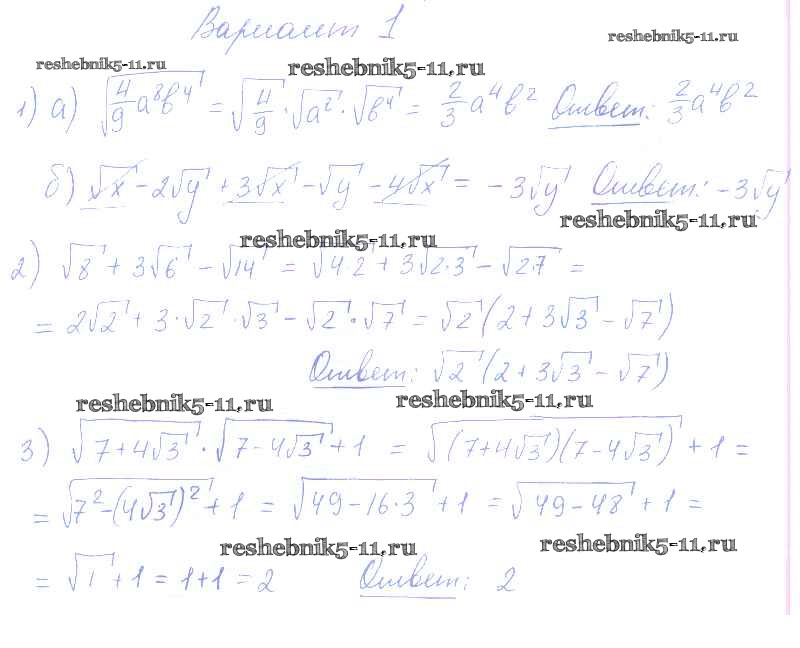 Вариант 1
reshebnik5-11.ru
reshebnik5-11.ru
reshebnik5-11.ru
1) а) √(4/9 a⁸b⁴) = √(4/9) · √(a²) · √(b⁴) = 2/3 a⁴b² Ответ: 2/3 a⁴b²
б) √x - 2√y + 3√x - √y - 4√x = -3√y Ответ: -3√y
reshebnik5-11.ru
reshebnik5-11.ru
2) √8 + 3√6 - √14 = √(4·2) + 3√(2·3) - √(2·7) =
= 2√2 + 3·√2·√3 - √2·√7 = √2(2 + 3√3 - √7)
Ответ: √2(2 + 3√3 - √7)
reshebnik5-11.ru
reshebnik5-11.ru
3) √(7+4√3) · √(7-4√3) + 1 = √((7+4√3)(7-4√3)) + 1 =
= √(7²-(4√3)²) + 1 = √(49-16·3) + 1 = √(49-48) + 1 =
reshebnik5-11.ru
reshebnik5-11.ru
= √1 + 1 = 1+1 = 2 Ответ: 2